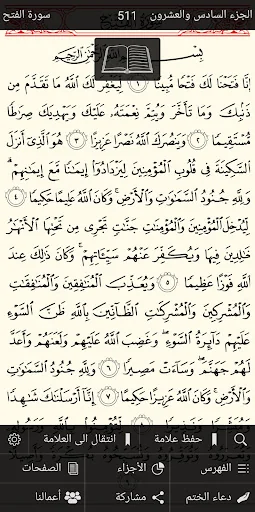 الجزء السادس والعشرون 511 سورة الفتح
بِسْمِ اللَّهِ الرَّحْمَٰنِ الرَّحِيمِ
إِنَّا فَتَحْنَا لَكَ فَتْحًا مُّبِينًا ١ لِّيَغْفِرَ لَكَ اللَّهُ مَا تَقَدَّمَ مِن
ذَنۢبِكَ وَمَا تَأَخَّرَ وَيُتِمَّ نِعْمَتَهُۥ عَلَيْكَ وَيَهْدِيَكَ صِرَٰطًا
مُّسْتَقِيمًا ٢ وَيَنصُرَكَ اللَّهُ نَصْرًا عَزِيزًا ٣ هُوَ الَّذِىٓ أَنزَلَ
السَّكِينَةَ فِى قُلُوبِ الْمُؤْمِنِينَ لِيَزْدَادُوٓا۟ إِيمَٰنًا مَّعَ إِيمَٰنِهِمْ ۗ
وَلِلَّهِ جُنُودُ السَّمَٰوَٰتِ وَالْأَرْضِ ۚ وَكَانَ اللَّهُ عَلِيمًا حَكِيمًا ٤
لِّيُدْخِلَ الْمُؤْمِنِينَ وَالْمُؤْمِنَٰتِ جَنَّٰتٍ تَجْرِى مِن تَحْتِهَا الْأَنْهَٰرُ
خَٰلِدِينَ فِيهَا وَيُكَفِّرَ عَنْهُمْ سَيِّـَٔاتِهِمْ ۚ وَكَانَ ذَٰلِكَ عِندَ
اللَّهِ فَوْزًا عَظِيمًا ٥ وَيُعَذِّبَ الْمُنَٰفِقِينَ وَالْمُنَٰفِقَٰتِ
وَالْمُشْرِكِينَ وَالْمُشْرِكَٰتِ الظَّآنِّينَ بِاللَّهِ ظَنَّ السَّوْءِ ۚ
عَلَيْهِمْ دَآئِرَةُ السَّوْءِ ۖ وَغَضِبَ اللَّهُ عَلَيْهِمْ وَلَعَنَهُمْ وَأَعَدَّ
لَهُمْ جَهَنَّمَ ۖ وَسَآءَتْ مَصِيرًا ٦ وَلِلَّهِ جُنُودُ السَّمَٰوَٰتِ
وَالْأَرْضِ ۚ وَكَانَ اللَّهُ عَزِيزًا حَكِيمًا ٧ إِنَّآ أَرْسَلْنَٰكَ شَٰهِدًا
حفظ علامة انتقال الى العلامة
الفهرس الأجزاء الصفحات
دعاء الختم مشاركة أعمالنا